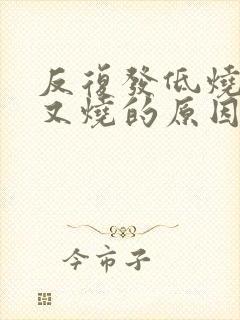 反復發低燒
又燒的原因
今市子